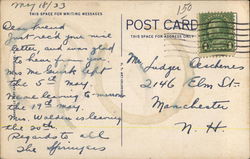 May 18/33
150
THIS SPACE FOR WRITING MESSAGES
POST CARD
THIS SPACE FOR ADDRESS ONLY
Dear friend
Just rec'd your nice
letter, and was glad
to hear from you.
Mrs Mc left
the 5th May.
leaving to-morrow
the 19th May.
Mrs. is leaving
the 20th
Regards to all
The
Mr. Judger
2146 Elm St-
Manchester
N. H.